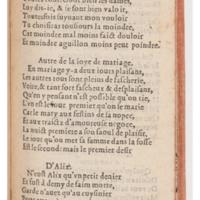 Luy dit-ie, & ie sont bien valo it,
Toutesfois suyuant mon vouloir
Tu choisiras tousiours la moindre,
Cat moindre mal moins faict douloir
Et moindre aguillon moins peut poindre.
Autre de la ioye de mariage.
En mariage y-a deux iours plaisans,
Les autres tous sont pleins de fascherie,
Voire, & tant sont fascheux & desplaisans,
Qu'on n'y pensant n'est possible qu'on rie,
L'vn est le iour premier qu'on se marie
Car le mary aux festins de la nopce,
Et au traict d'amoureuse negoce,
La nuict premiere a son saoul de plaisir.
Le iour qu'on met sa femme dans la fosse
Est le second: mais le premier desir
D'Alix.
N'eust Alix qu'vn petit denier
Et fust à demy de faim morte,
Garde n'auez qu'au cuysinier